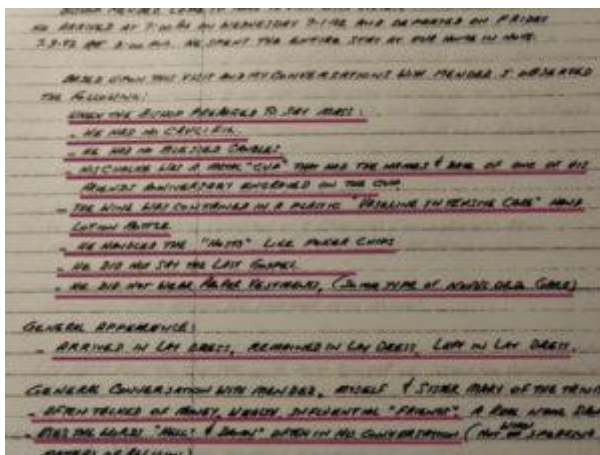 HE ARRIVED AT 7:00 PM ON WEDNESDAY AND DEPARTED ON FRIDAY
HE SPENT THE ENTIRE STAY AT OUR HOME IN
BASED UPON THIS VISIT AND MY CONVERSATIONS WITH MENDEZ I OBSERVED
THE FOLLOWING:
WHEN THE BISHOP PREPARED TO SAY MASS:
- HE HAD NO CRUCIFIX.
- HE HAD NO BLESSED CANDLES
- HIS CHALICE WAS A METAL "CUP" THAT HAD THE NAMES & DATE OF ONE OF HIS
FRIENDS ANNIVERSARY ENGRAVED ON THE CUP
- THE WINE WAS CONTAINED IN A PLASTIC "VASELINE INTENSIVE CARE" HAND
LOTION BOTTLE
- HE HANDLED THE "HOSTS" LIKE POKER CHIPS
- HE DID NOT SAY THE LAST GOSPEL
- HE DID NOT WEAR PROPER VESTMENTS, (SOME TYPE OF NOVUS ORDO GARB)
GENERAL APPEARENCE:
- ARRIVED IN LAY DRESS, REMAINED IN LAY DRESS, LEFT IN LAY DRESS.
GENERAL CONVERSATION WITH MENDEZ, MYSELF & SISTER MARY OF THE
- OFTEN TALKED OF MONEY, WEALTH, INFLUENTIAL "FRIENDS", A REAL NAME
- USES THE WORDS "HELL" & "DAMN" OFTEN IN HIS CONVERSATION (NOT WHEN SPEAKING
MATTERS OF RELIGION)